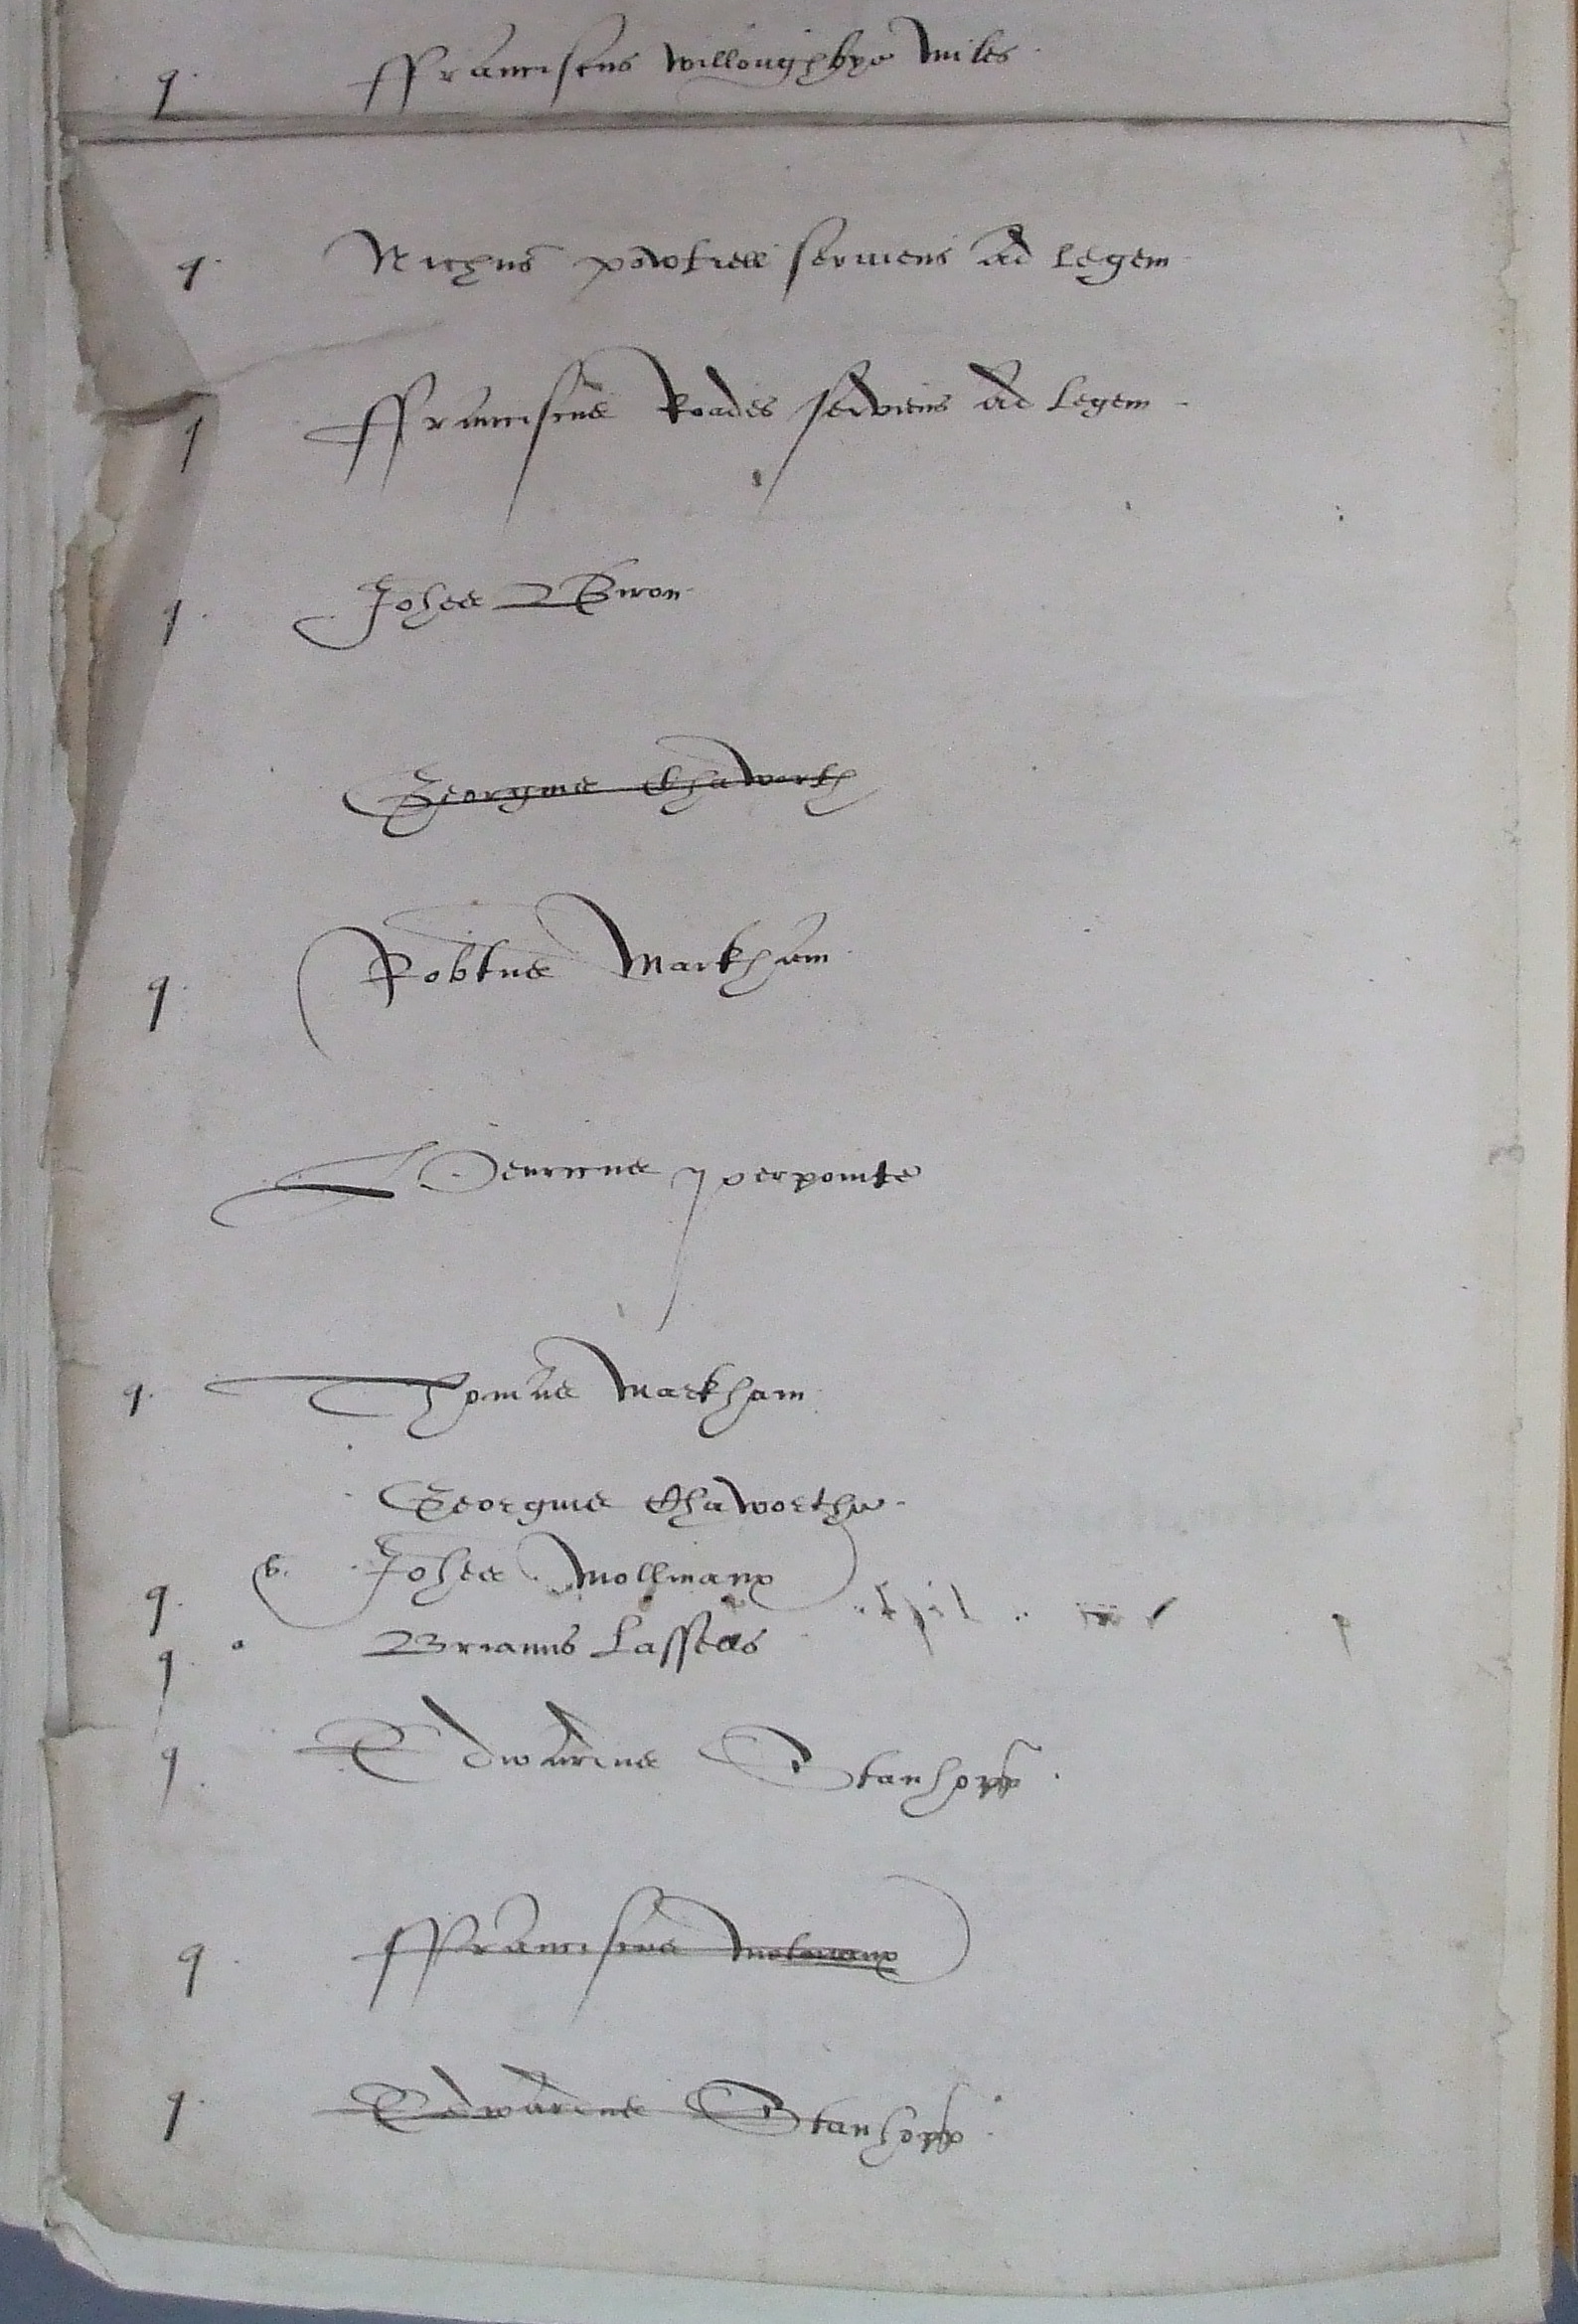 q. ffranciscus Willoughbye miles
q. Nichus Powtrell serviens ad legem
q ffranciscus Roades serviens ad legem
q. Johes Biron
Georgius Chaworth
q. Robtus Markham
Henricus Perpointe
q. Thomas Markham
Georgius Chaworthe
q. Johes Mollinaxx
q. Brianus Lassels
q. Edwardus Stanhopp
q. ffranciscus Molinaxx
q. Edwardus Stanhopp